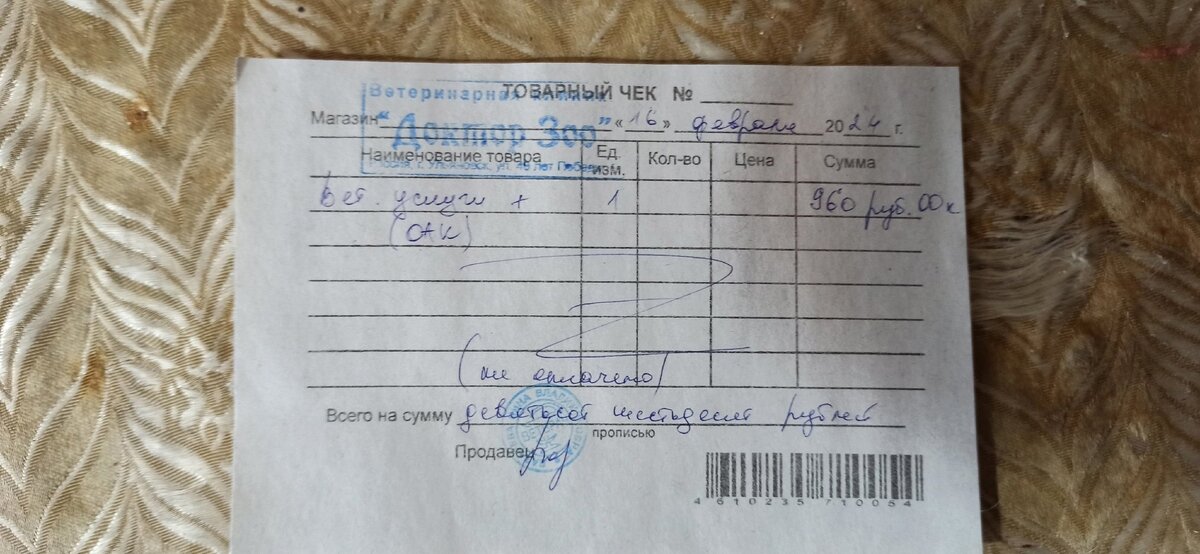 Ветеринарная клиника
ТОВАРНЫЙ ЧЕК № 
Магазин "Доктор Зоо" «16» февраля 2024 г.
Наименование товара Ед. изм. Кол-во Цена Сумма
г. Ульяновск, ул. 40 лет Победы
Вет. услуги + 1 960 руб. 00 к
(ОАК)
(не оплачено)
Всего на сумму девятьсот шестьдесят рублей
прописью
Продавец
4610235710054